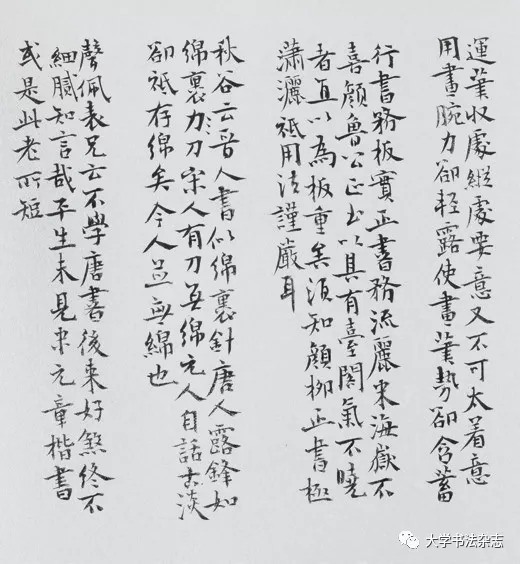 運筆収處縱處要意又不可太着意
用畫腕力卻輕露使畫筆勢卻含蓄
行書務板實正書務流麗米海嶽不
喜顏魯公正书以具有臺閣氣不曉
者直以為板重矣須知顏柳正書極
瀟灑祇用法謹嚴耳
秋谷云晉人書似綿裏針唐人露鋒如
綿裏力刀宋人有刀无綿元人自話古淡
卻祇存綿矣今人並無綿也
聲佩表兄云不學唐書後来好煞終不
細膩知言哉平生未見米元章楷書
或是此老所短
大学书法杂志